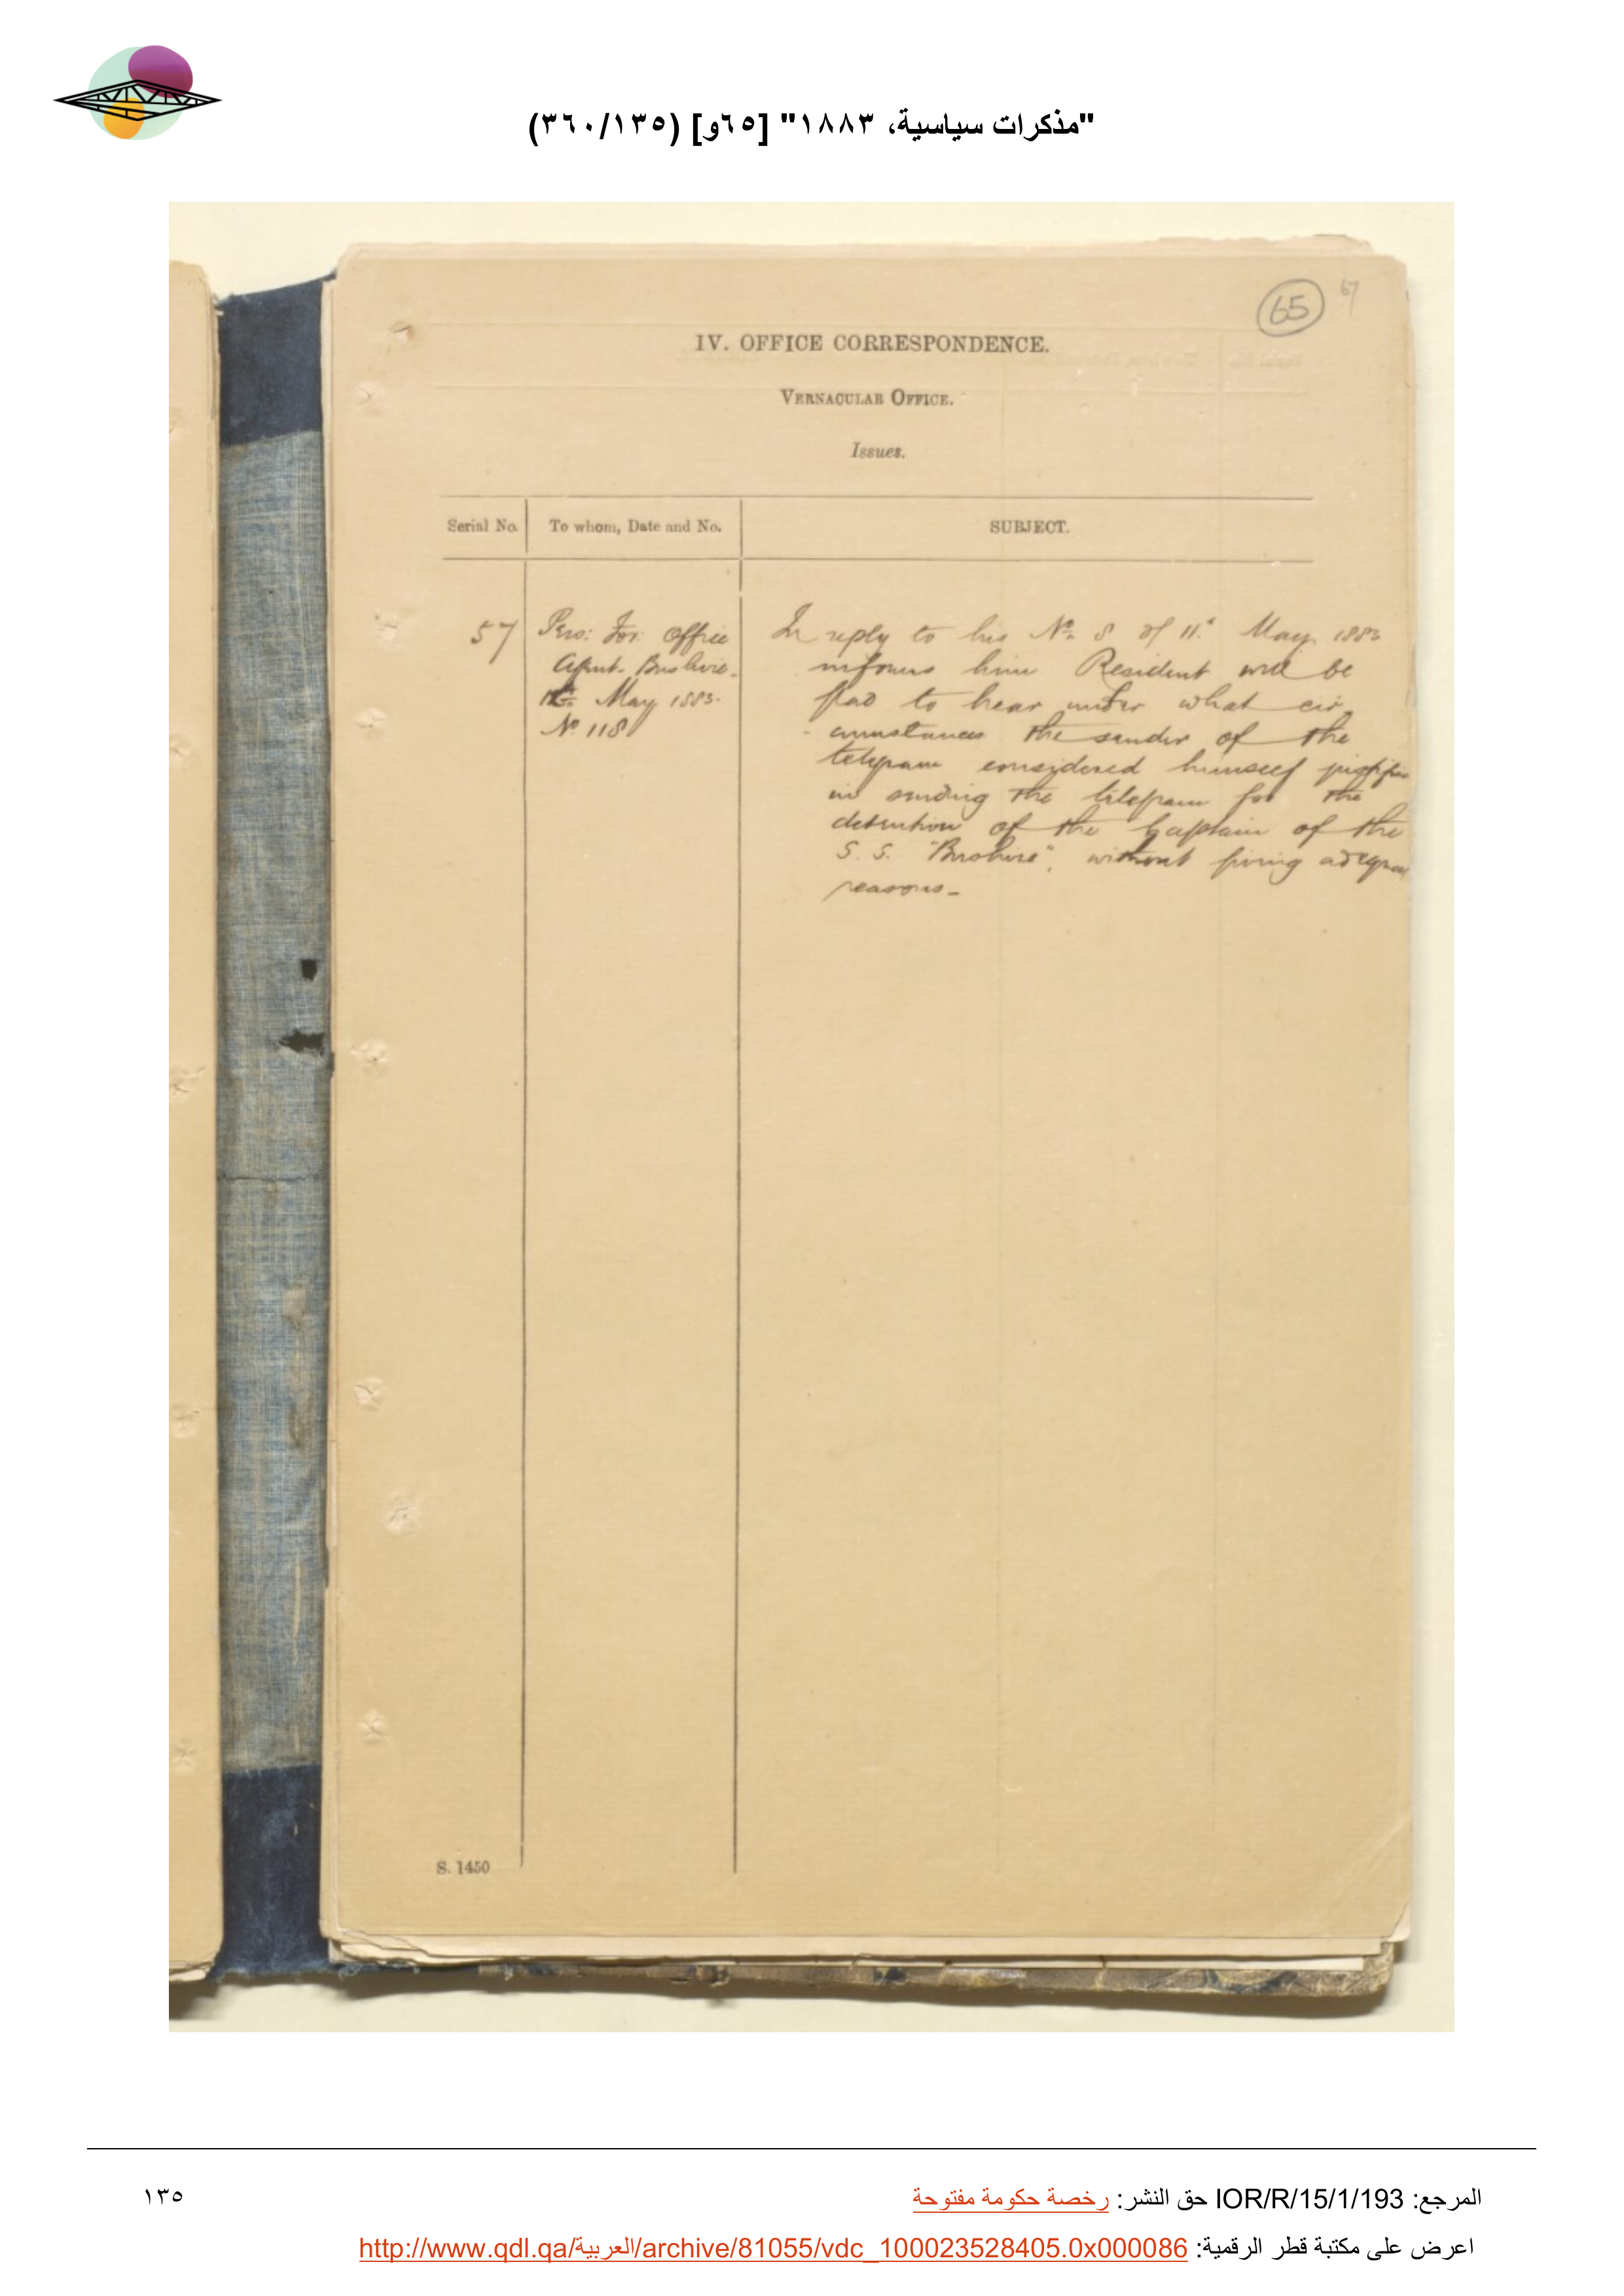 "مذكرات سياسية، ١٨٨٣" [٦٥و] (٣٦٠/١٣٥)
65
67
IV. OFFICE CORRESPONDENCE.
VERNACULAR OFFICE.
Issues.
Serial No.
To whom, Date and No.
SUBJECT.
57
Pers: For: Office
Agent. Bushire.
May 1883.
No 118
In reply to his No. 8 of 11th May 1883
informs him Resident will be
glad to hear under what cir
cumstances the sender of the
telegram considered himself justified
in sending the telegram for the
detention of the Captain of the
S. S. "Bushire", without giving adequate
reasons_
S. 1450
المرجع: IOR/R/15/1/193 حق النشر: رخصة حكومة مفتوحة
١٣٥
اعرض على مكتبة قطر الرقمية: http://www.qdl.qa/العربية/archive/81055/vdc_100023528405.0x000086